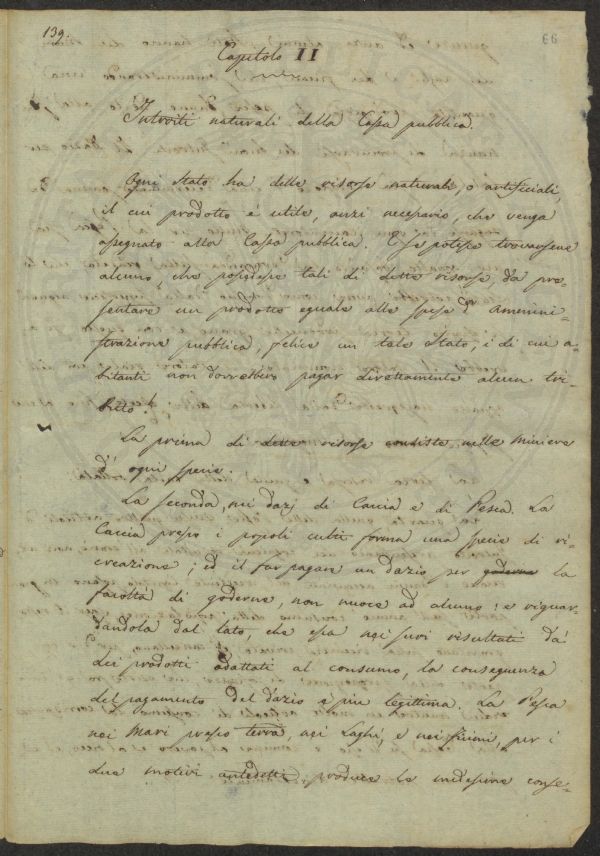 139.
66
Capitolo II
Introiti naturali della Cassa pubblica.
Ogni Stato ha delle risorse naturali, o artificiali,
il cui prodotto è utile, anzi necessario, che venga
assegnato alla Cassa pubblica. E se potesse trovarsene
alcuno, che possedesse tali di dette risorse, da pre-
sentare un prodotto eguale alle spese d' Ammini-
strazione pubblica, felice un tale Stato, i di cui a-
bitanti non dovrebbero pagar direttamente alcun tri-
buto!
La prima di dette risorse consiste nelle miniere
d' ogni specie.
La seconda, nei dazj di Caccia e di Pesca. La
Caccia presso i popoli culti forma una specie di ri-
creazione; ed il far pagare un dazio per goderne la
facoltà di goderne, non nuoce ad alcuno: e riguar-
dandola dal lato, che essa nei suoi risultati dà
dei prodotti adattati al consumo, la conseguenza
del pagamento del dazio è più legittima. La Pesca
nei Mari presso terra, nei Laghi, e nei fiumi, per i
due motivi antedetti, produce le medesime conse-